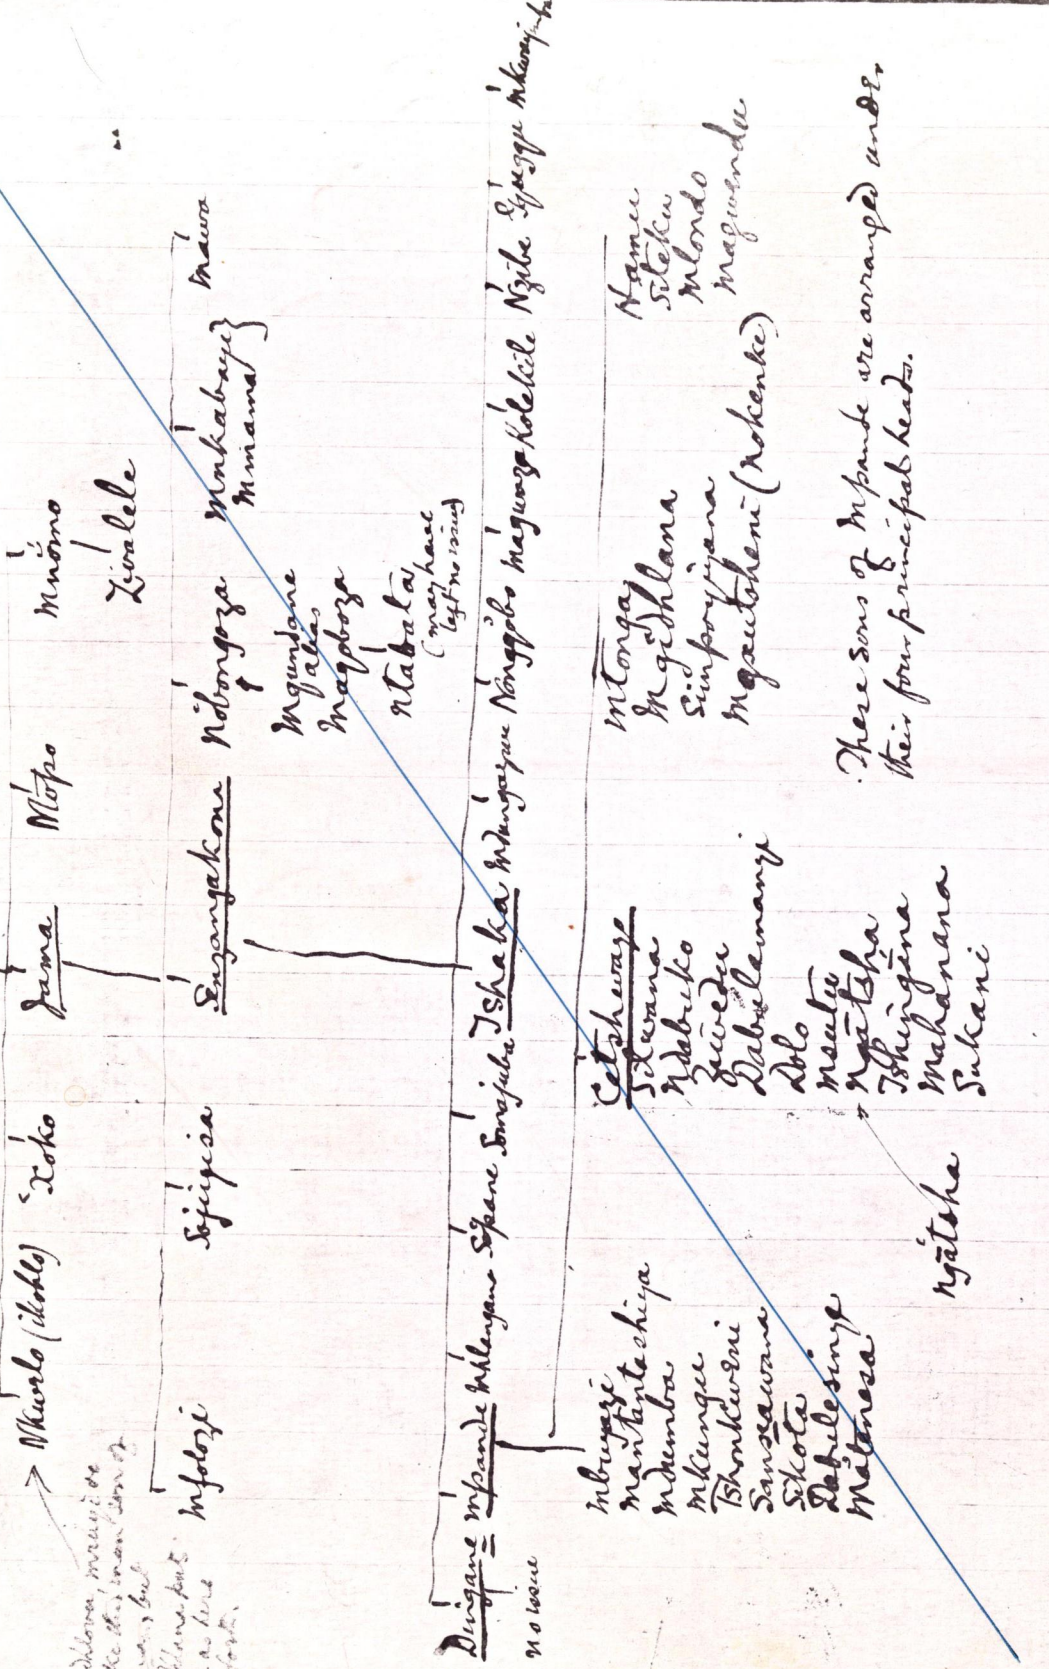 Nkwelo (ikohlo) Xoko Jama Mopo Mnomo
Zivalele
Mfolozi Sojiyisa Senzangakona Nobongoza Mnkabayi Mawa
Mmama
Mqundane
alias
Maqoboza
Ntabala
(may have
left no issue)
Dingane = Mpande Mhlangana Sopane Somajuba Tshaka Mdungazwe Nongqobo Magwaza Kolekile Nzibe Gqugqu
no issue
Mbuyazi
Mantantashiya
Mdumba
Mkungu
Tshonkweni
Sansawana
Sikota
Dabulesinye
Matanesa
Cetshwayo
Silwana
Ndabuko
Ziwedu
Dabulamanzi
Dolo
Msutu
Ngatsha
Tshingana
Mahanana
Sukani
Ngatsha
Mtonga
Mgidhlana
Simpoyiyana
Mgxutsheni (Nokenke)
Hamu
Siteku
Mlondo
Magwendu
These sons of Mpande are arranged under
their four principal heads.